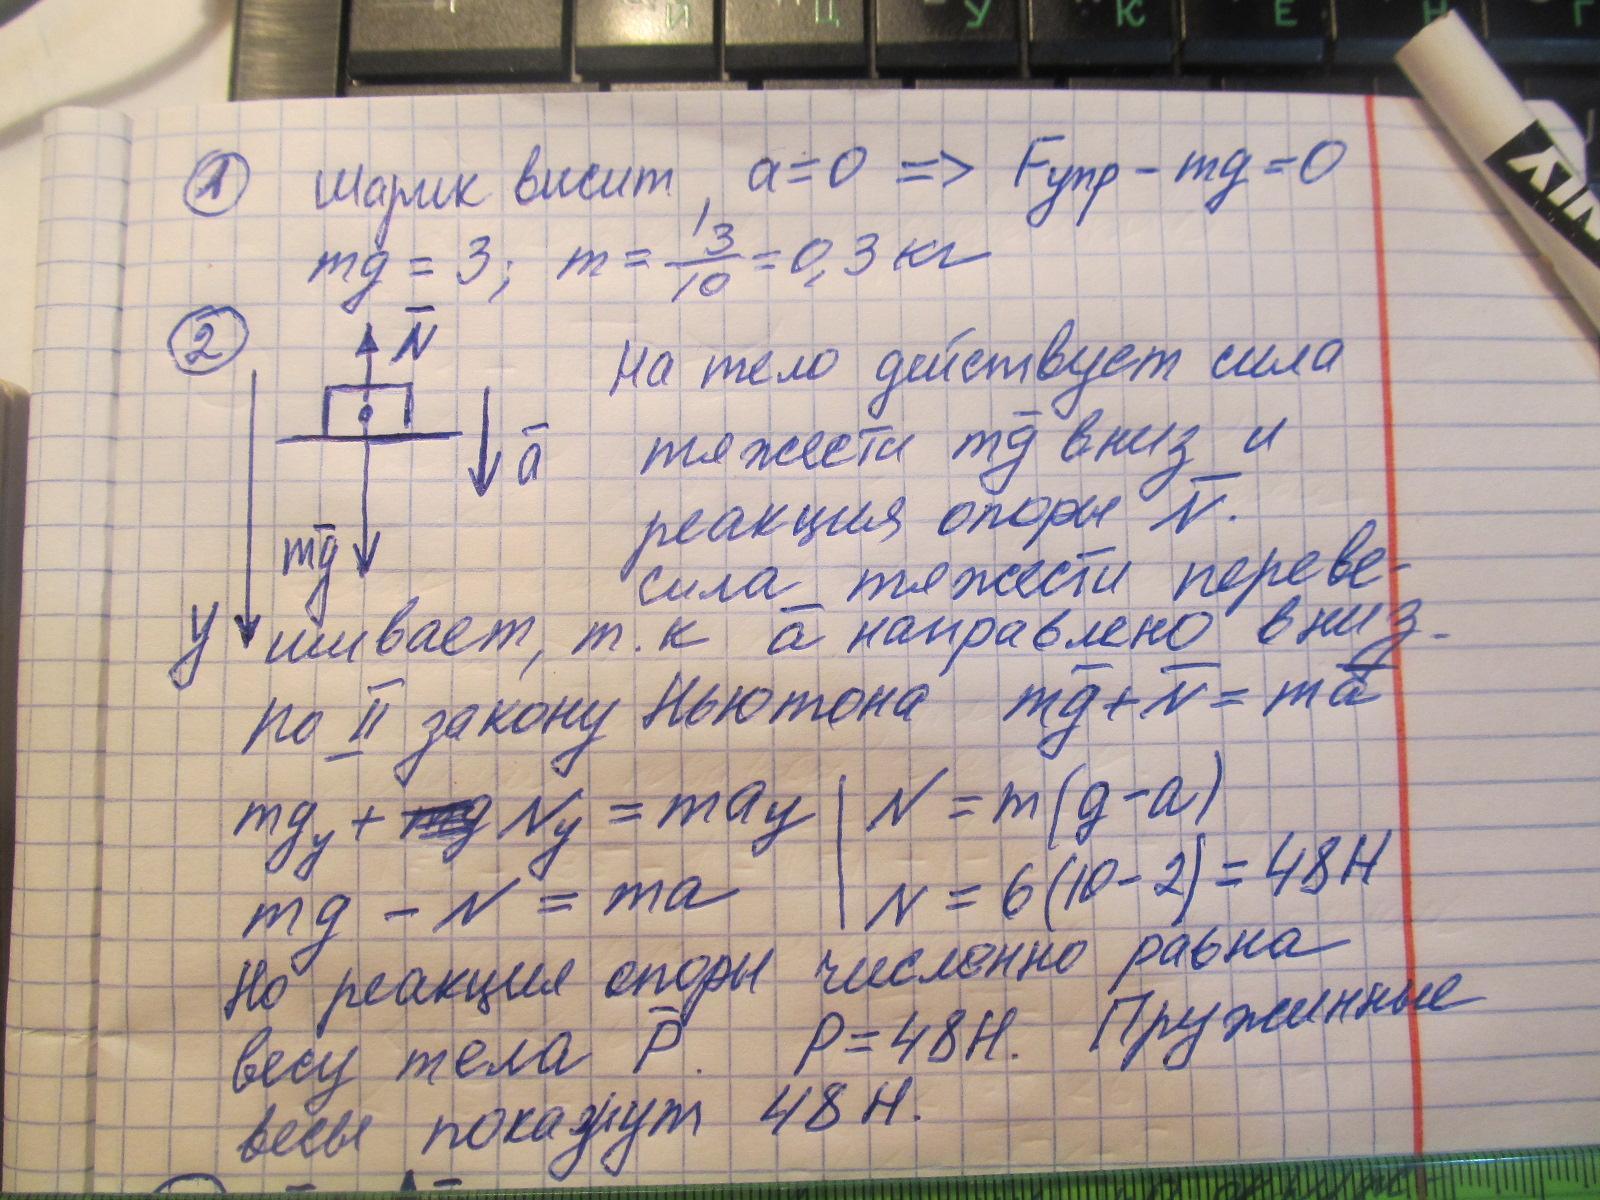 И Ц У К Е Н Г
1 Шарик висит, a=0 => Fупр - mg = 0
mg = 3; m = 3/10 = 0,3 кг
2 N̄ На тело действует сила
ā тяжести mḡ вниз и
mḡ реакция опоры N̄.
сила тяжести переве-
y шивает, т.к ā направлено вниз.
По II закону Ньютона mḡ + N̄ = mā
mgy + Ny = may | N = m(g-a)
mg - N = ma | N = 6(10-2) = 48Н
Но реакция опоры численно равна
весу тела P̄. P=48Н. Пружинные
весы покажут 48Н.